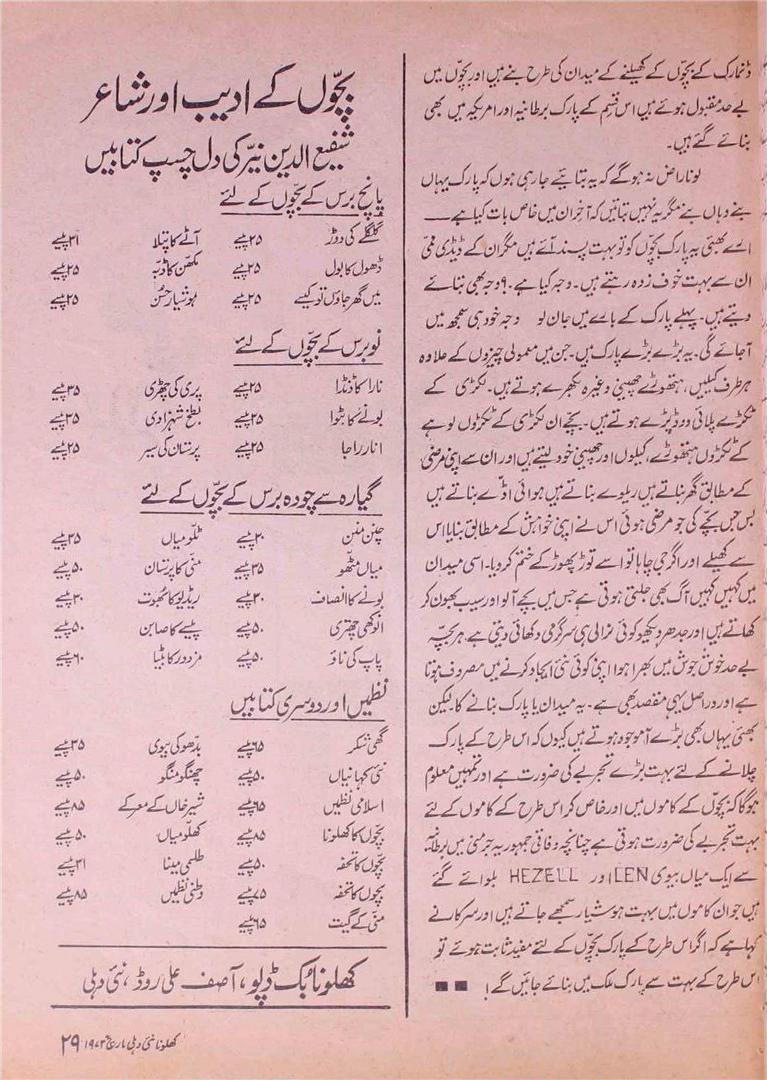 ڈنمارک کے بچّوں کے کھیلنے کے میدان کی طرح بنے ہیں اور بچّوں میں
بے حد مقبول ہوئے ہیں اس قسم کے پارک برطانیہ اور امریکہ میں بھی
بنائے گئے ہیں۔
لو ناراض نہ ہو گے کہ یہ بتائیے جا رہی ہوں کہ پارک یہاں
بنے وہاں بنے مگر یہ نہیں بتائیں کہ آخر ان میں خاص بات کیا ہے ــــ
اے بھئی یہ پارک بچّوں کو تو بہت پسند آئے ہیں مگر ان کے ڈیڈی ممّی
ان سے بہت خوف زدہ رہتے ہیں۔ وجہ کیا ہے۔ ؟ وجہ بھی بتائے
دیتے ہیں۔ پہلے پارک کے بارے میں جان لو وجہ خود ہی سمجھ میں
آ جائے گی۔ یہ بڑے بڑے پارک ہیں۔ جن میں معمولی چیزوں کے علاوہ
ہر طرف کیلیں، ہتھوڑے چھینی وغیرہ بکھرے ہوتے ہیں۔ لکڑی کے
ٹکڑے پلائی ووڈ پڑے ہوتے ہیں۔ بچے ان لکڑی کے ٹکڑوں لوہے
کے ٹکڑوں ہتھوڑے، کیلوں اور چھینی خود لیتے ہیں اور ان سے اپنی مرضی
کے مطابق گھر بناتے ہیں ریلوے بناتے ہیں ہوائی اڈّے بناتے ہیں
بس جس بچّے کی جو مرضی ہوئی اس نے اپنی خواہش کے مطابق بنایا اس
سے کھیلے اور اگر جی چاہا تو اسے توڑ پھوڑ کے ختم کر دیا۔ اسی میدان
میں کہیں کہیں آگ بھی جلتی ہوتی ہے جس میں بچے آلو اور سیب بھون کر
کھاتے ہیں اور جدھر دیکھو کوئی نرالی ہی سرگرمی دکھائی دیتی ہے۔ ہر بچّہ
بے حد خوش جوش میں بھرا ہوا اپنی کوئی نئی ایجاد کرنے میں مصروف ہوتا
ہے اور دراصل یہی مقصد بھی ہے۔ یہ میدان یا پارک بنانے کا۔ لیکن
بھئی یہاں بھی بڑے آ موجود ہوتے ہیں کیوں کہ اس طرح کے پارک
چلانے کے لئے بہت بڑے تجربے کی ضرورت ہے اور تمہیں معلوم
ہوگا کہ بچّوں کے کاموں میں اور خاص کر اس طرح کے کاموں کے لئے
بہت تجربے کی ضرورت ہوتی ہے چنانچہ وفاقی جمہوریہ جرمنی میں برطانیہ
سے ایک میاں بیوی LEN اور HEZELL بلوائے گئے
ہیں جو ان کاموں میں بہت ہوشیار سمجھے جاتے ہیں اور سرکار نے
کہا ہے کہ اگر اس طرح کے پارک بچّوں کے لئے مفید ثابت ہوئے تو
اس طرح کے بہت سے پارک ملک میں بنائے جائیں گے!
بچّوں کے ادیب اور شاعر
شفیع الدین نیّر کی دل چسپ کتابیں
پانچ برس کے بچّوں کے لئے
گلگلے کی دوڑ ۲۵ پیسے آٹے کا پتلا ۳۱ پیسے
ڈھول کا پول ۲۵ پیسے مکھّن کا ڈبّہ ۲۵ پیسے
میں گھر جاؤں تو کیسے ۲۵ پیسے ہوشیار حسن ۲۵ پیسے
نو برس کے بچّوں کے لئے
تارا کا ڈنڈا ۲۵ پیسے پری کی چھڑی ۳۵ پیسے
بونے کا بٹوا ۲۵ پیسے بطخ شہزادی ۳۵ پیسے
انار راجا ۲۵ پیسے پرستان کی سیر ۲۵ پیسے
گیارہ سے چودہ برس کے بچّوں کے لئے
چنّن منن ۲۰ پیسے ٹلّو میاں ۳۵ پیسے
میاں مٹھو ۳۵ پیسے منّی کا پرستان ۵۰ پیسے
بونے کا انصاف ۲۰ پیسے ریڈیو کا بھوت ۳۰ پیسے
انوکھی چھتری ۵۰ پیسے پیسے کا صابن ۵۰ پیسے
پاپ کی ناؤ ۵۰ پیسے مزدور کا بیٹا ۶۰ پیسے
نظمیں اور دوسری کتابیں
گھی شکر ۶۵ پیسے بدھو کی بیوی ۳۵ پیسے
نئی کہانیاں ۵۰ پیسے چھنگو منگو ۵۰ پیسے
اسلامی نظمیں ۶۵ پیسے شیر خاں کے معرکے ۸۵ پیسے
بچّوں کا کھلونا ۸۵ پیسے کھلّو میاں ۵۰ پیسے
بچّوں کا تحفہ ۵۰ پیسے طلسمی مینا ۳۱ پیسے
بچوں کا تحفہ ۷۵ پیسے وطنی نظمیں ۸۵ پیسے
منّی کے گیت ۶۵ پیسے
کھلونا بُک ڈپو، آصف علی روڈ، نئی دہلی
کھلونا نئی دہلی مارچ ۱۹۷۳ء ۲۹